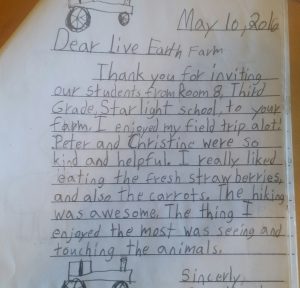 May 10, 2016
Dear Live Earth Farm
Thank you for inviting
our students from Room 8, Third
Grade, Starlight school, to your
farm. I enjoyed my field trip alot!
Peter and Christine were so
kind and helpful. I really liked
eating the fresh strawberries,
and also the carrots. The hiking
was awesome. The thing I
enjoyed the most was seeing and
touching the animals.
Sincerly,